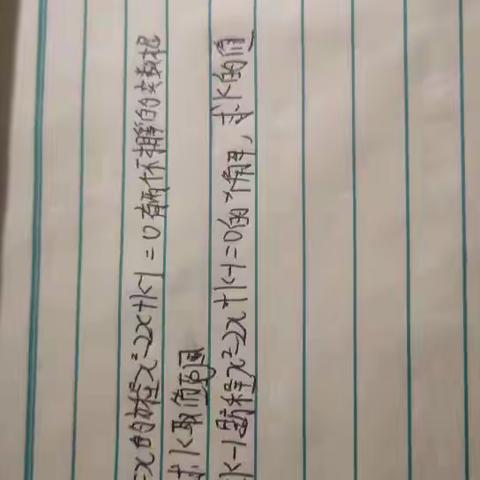 x的方程x²-2x+k-1=0有两个不相等的实数根
求k取值范围
k-1是方程x²-2x+k-1=0的一个解，求k的值